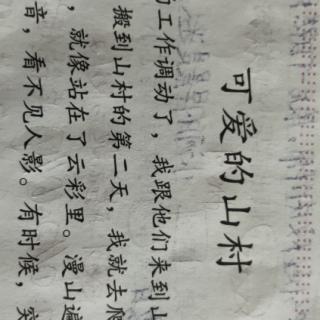 可爱的山村
工作调动了，我跟他们来到山
搬到山村的第二天，我就去爬
，就像站在了云彩里。漫山遍
音，看不见人影。有时候，突